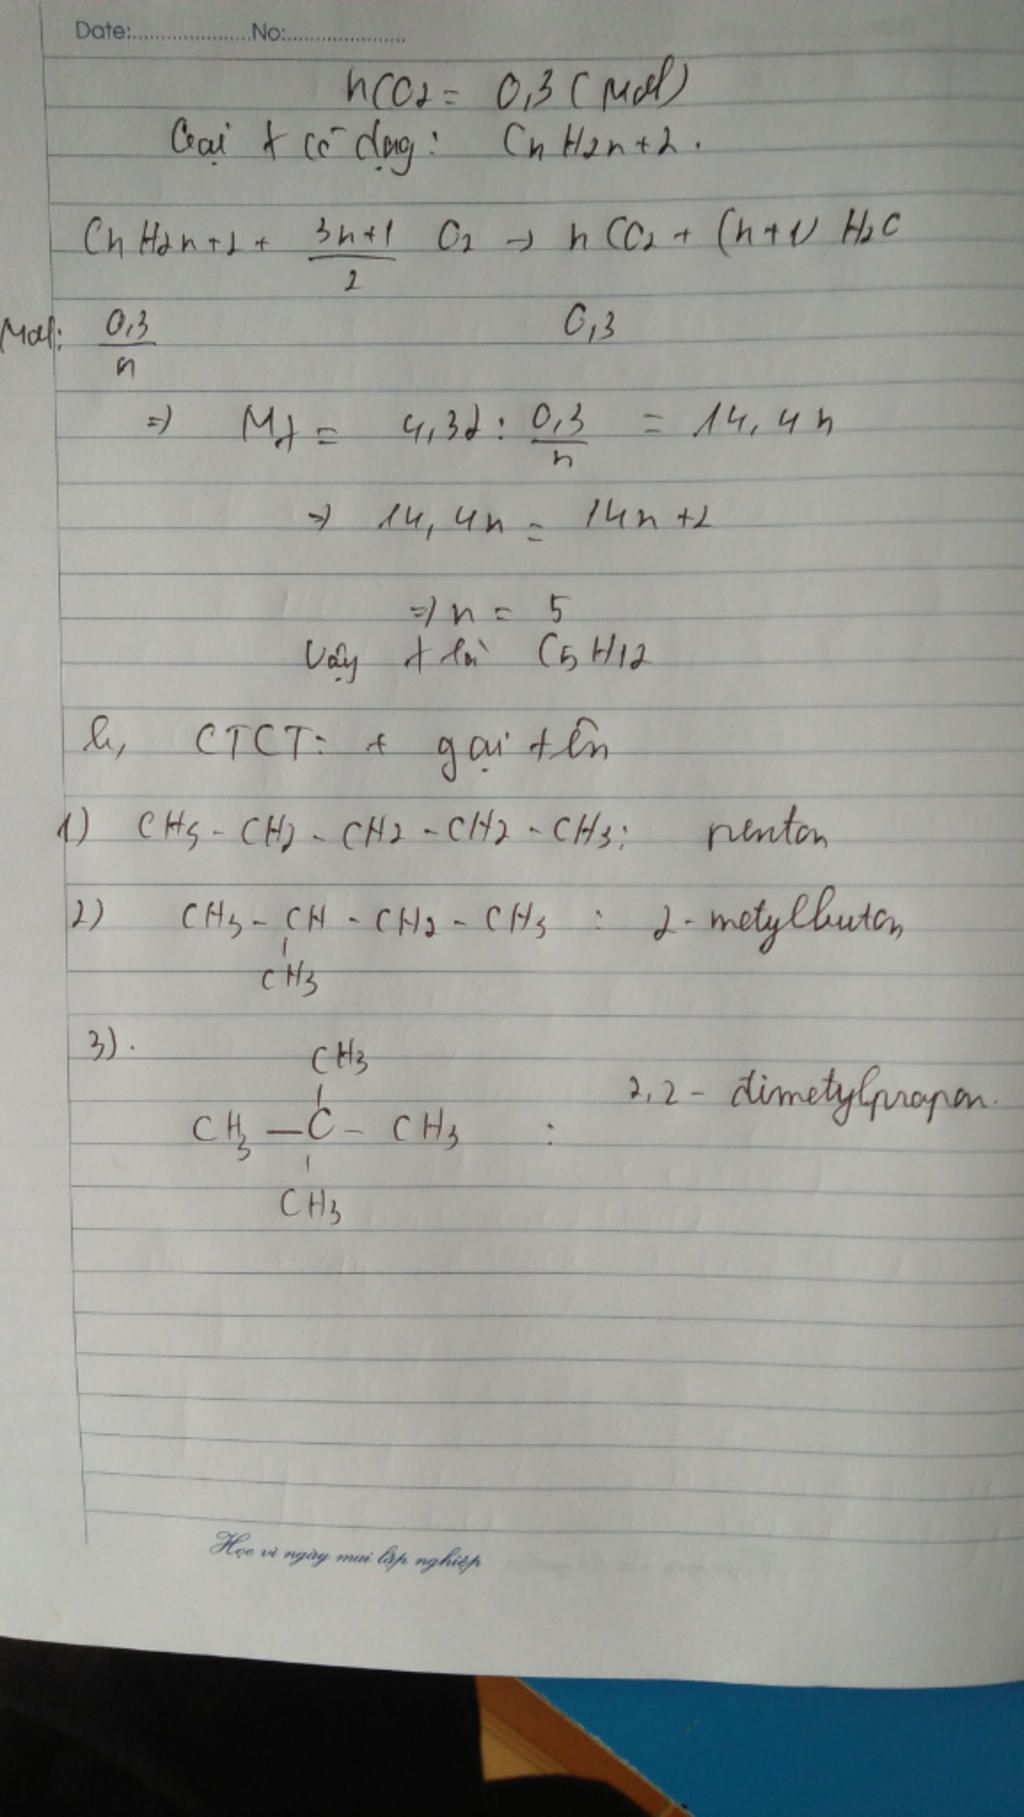 Date:.....................No:.....................
nCO2 = 0,3 (mol)
Gọi X có dạng: CnH2n+2.
CnH2n+2 + 3n+1/2 O2 → nCO2 + (n+1) H2O
Mol: 0,3/n 0,3
=> MX = 4,32 : 0,3/n = 14,4n
=> 14,4n = 14n+2
=> n = 5
Vậy X là C5H12
b, CTCT: + gọi tên
1) CH3 - CH2 - CH2 - CH2 - CH3: pentan
2) CH3 - CH - CH2 - CH3 : 2-metylbutan
CH3
3).
CH3
2,2 - dimetylpropan.
CH3 — C - CH3 :
CH3
Học vì ngày mai lập nghiệp